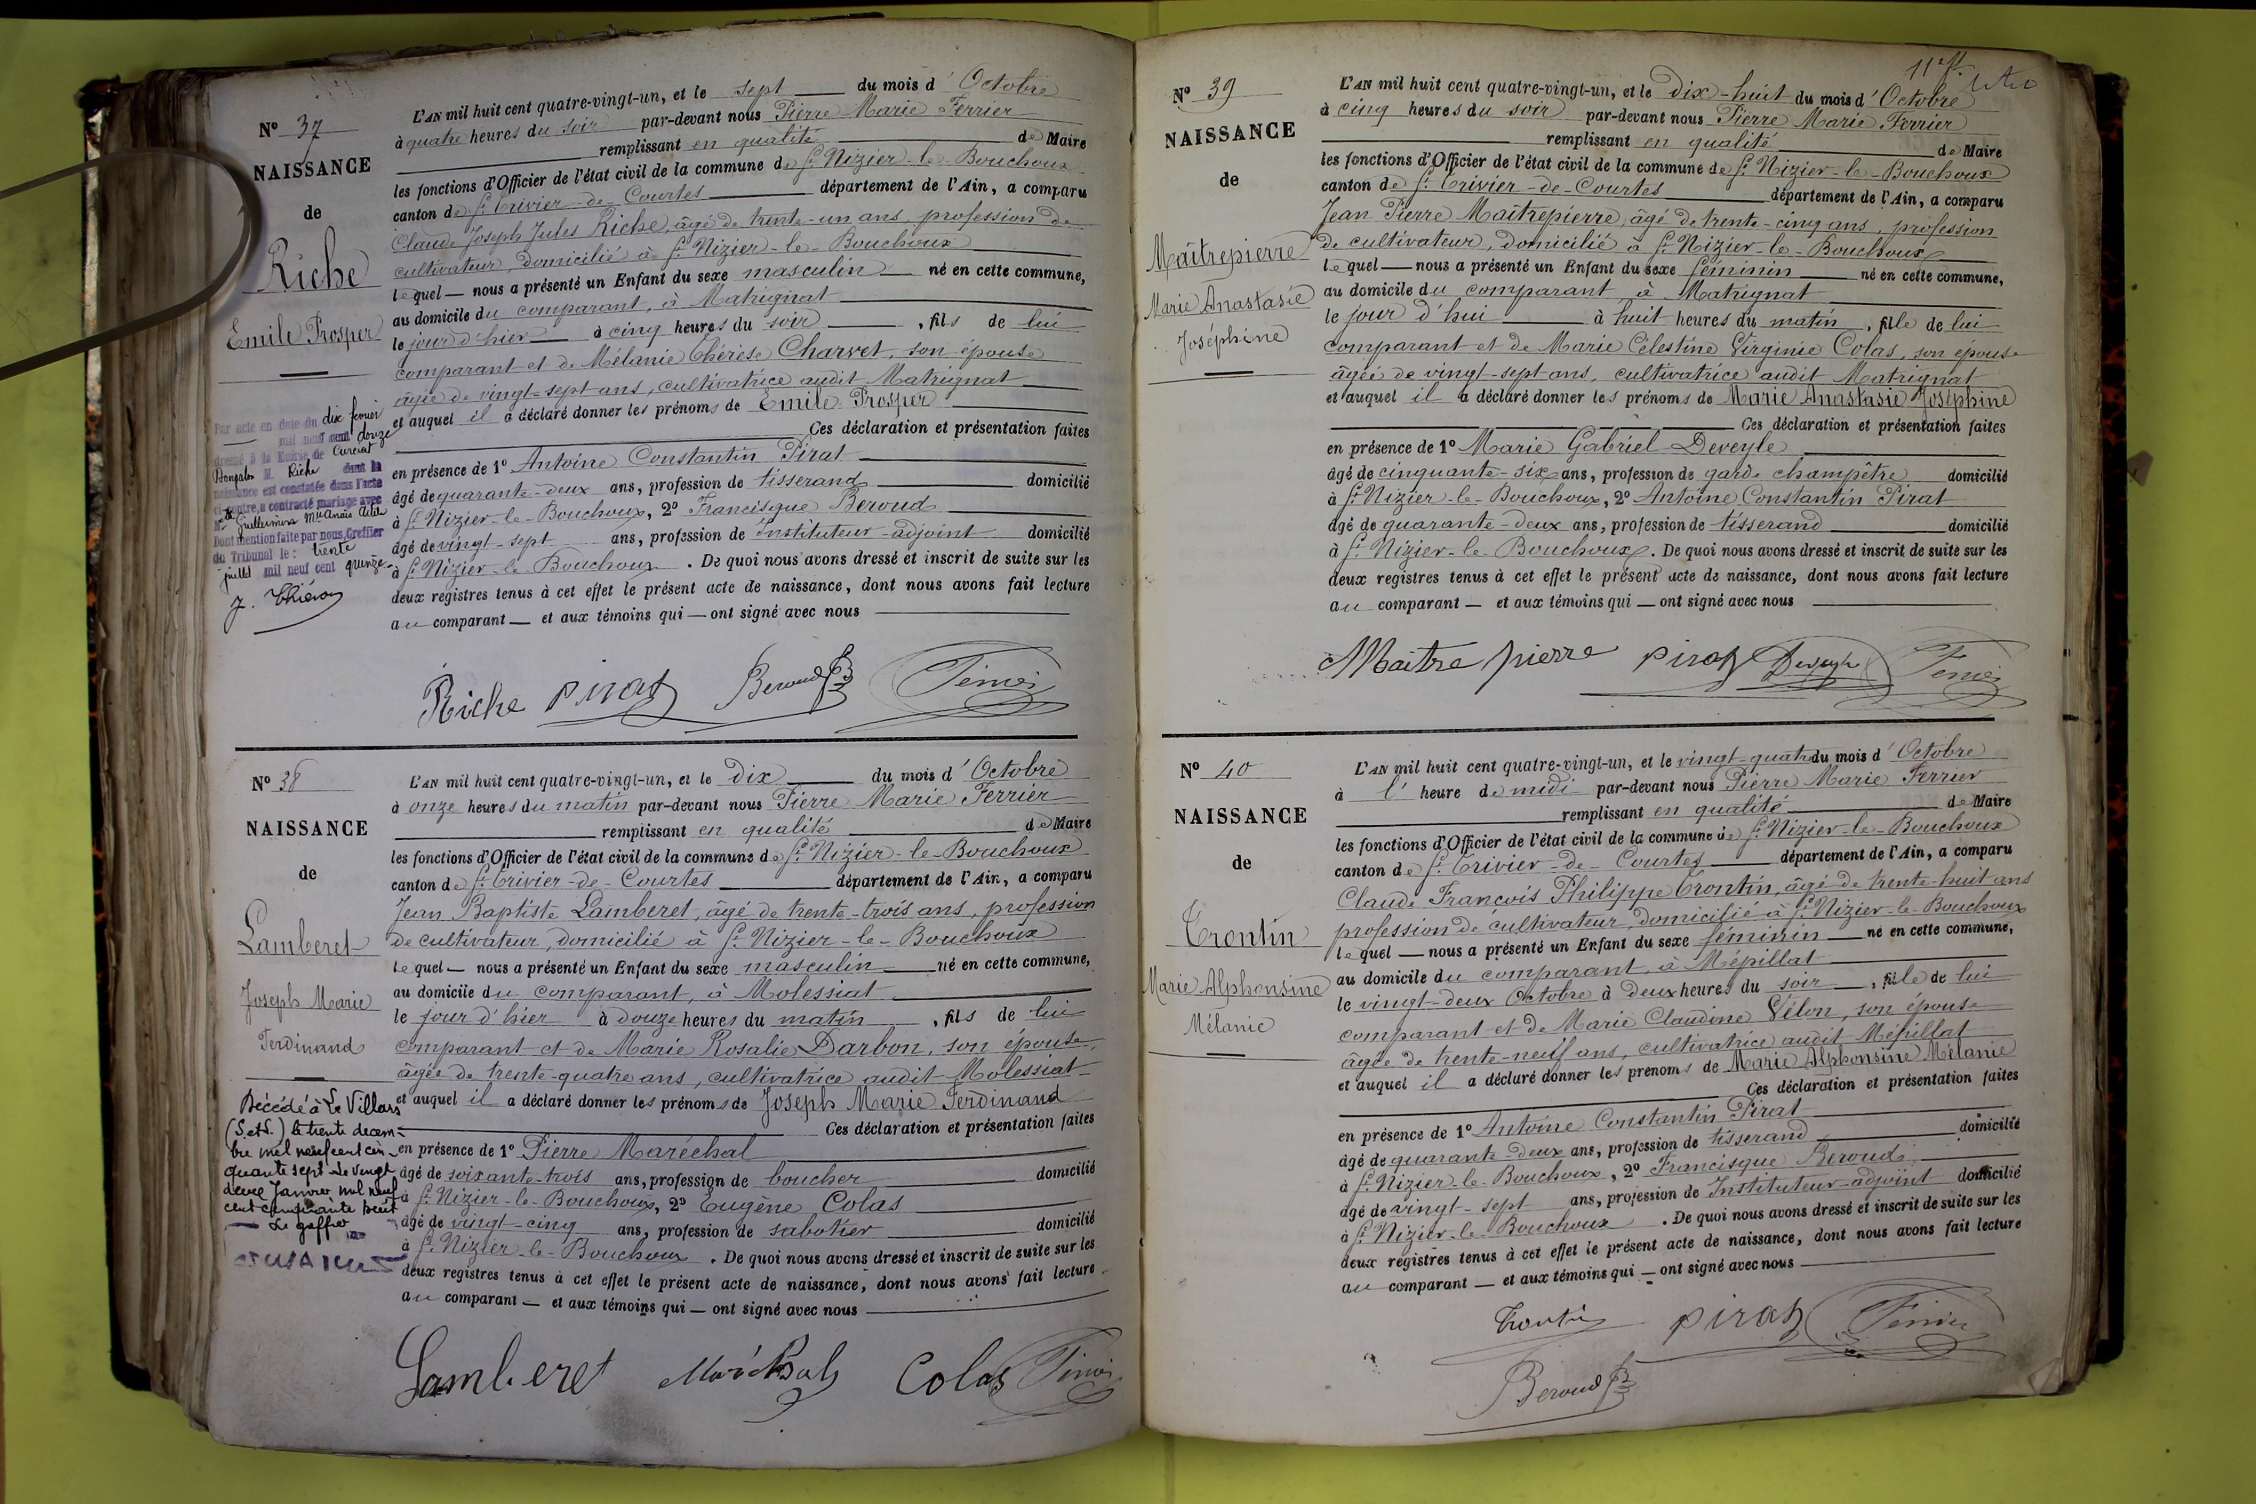 N° 37
NAISSANCE
de
Riche
Emile Prosper
Par acte en date du dix fevrier
mil neuf cent douze
dressé à la Mairie de Curciat
Dongalon M. Riche dont la
naissance est constatée dans l'acte
ci-contre, a contracté mariage avec
Guillermin Mie Anaïs Adèle
Dont mention faite par nous, Greffier
du Tribunal le : trente
juillet mil neuf cent quinze
L'AN mil huit cent quatre-vingt-un, et le sept du mois d'Octobre
à quatre heures du soir par-devant nous Pierre Marie Ferrier
remplissant en qualité de Maire
les fonctions d'Officier de l'état civil de la commune de St Nizier-le-Bouchoux
canton de St Trivier-de-Courtes département de l'Ain, a comparu
Claude Joseph Jules Riche, âgé de trente-un ans, profession de
cultivateur, domicilié à St Nizier-le-Bouchoux
lequel nous a présenté un Enfant du sexe masculin né en cette commune,
au domicile du comparant, à Matrignat
le jour d'hier à cinq heures du soir, fils de lui
comparant et de Mélanie Thérèse Charvet, son épouse
âgée de vingt-sept ans, cultivatrice audit Matrignat
et auquel il a déclaré donner les prénoms de Emile Prosper
Ces déclaration et présentation faites
en présence de 1° Antoine Constantin Pirat
âgé de quarante-deux ans, profession de tisserand domicilié
à St Nizier-le-Bouchoux, 2° Francisque Beroud
âgé de vingt-sept ans, profession de Instituteur-adjoint domicilié
à St Nizier-le-Bouchoux. De quoi nous avons dressé et inscrit de suite sur les
deux registres tenus à cet effet le présent acte de naissance, dont nous avons fait lecture
au comparant et aux témoins qui ont signé avec nous
Riche Pirat Beroud Ferrier
N° 38
NAISSANCE
de
Lamberet
Joseph Marie
Ferdinand
Décédé à Le Villars
(S.et L.) le trente decem-
bre mil neuf cent cin-
quante sept. Le vingt
deux Janvier mil neuf
cent cinquante huit
Le greffier
L'AN mil huit cent quatre-vingt-un, et le dix du mois d'Octobre
à onze heures du matin par-devant nous Pierre Marie Ferrier
remplissant en qualité de Maire
les fonctions d'Officier de l'état civil de la commune de St Nizier-le-Bouchoux
canton de St Trivier-de-Courtes département de l'Ain, a comparu
Jean Baptiste Lamberet, âgé de trente-trois ans, profession
de cultivateur, domicilié à St Nizier-le-Bouchoux
lequel nous a présenté un Enfant du sexe masculin né en cette commune,
au domicile du comparant, à Molessiat
le jour d'hier à douze heures du matin, fils de lui
comparant et de Marie Rosalie Darbon, son épouse,
âgée de trente-quatre ans, cultivatrice audit Molessiat
et auquel il a déclaré donner les prénoms de Joseph Marie Ferdinand
Ces déclaration et présentation faites
en présence de 1° Pierre Maréchal
âgé de soixante-trois ans, profession de boucher domicilié
à St Nizier-le-Bouchoux, 2° Eugène Colas
âgé de vingt-cinq ans, profession de sabotier domicilié
à St Nizier-le-Bouchoux. De quoi nous avons dressé et inscrit de suite sur les
deux registres tenus à cet effet le présent acte de naissance, dont nous avons fait lecture
au comparant et aux témoins qui ont signé avec nous
Lamberet Maréchal Colas Ferrier
N° 39
NAISSANCE
de
Maîtrepierre
Marie Anastasie
Joséphine
L'AN mil huit cent quatre-vingt-un, et le dix-huit du mois d'Octobre
à cinq heures du soir par-devant nous Pierre Marie Ferrier
remplissant en qualité de Maire
les fonctions d'Officier de l'état civil de la commune de St Nizier-le-Bouchoux
canton de St Trivier-de-Courtes département de l'Ain, a comparu
Jean Pierre Maîtrepierre, âgé de trente-cinq ans, profession
de cultivateur, domicilié à St Nizier-le-Bouchoux
lequel nous a présenté un Enfant du sexe féminin né en cette commune,
au domicile du comparant, à Matrignat
le jour d'hui à huit heures du matin, fille de lui
comparant et de Marie Célestine Virginie Colas, son épouse
âgée de vingt-sept ans, cultivatrice audit Matrignat
et auquel il a déclaré donner les prénoms de Marie Anastasie Joséphine
Ces déclaration et présentation faites
en présence de 1° Marie Gabriel Deveyle
âgé de cinquante-six ans, profession de garde champêtre domicilié
à St Nizier-le-Bouchoux, 2° Antoine Constantin Pirat
âgé de quarante-deux ans, profession de tisserand domicilié
à St Nizier-le-Bouchoux. De quoi nous avons dressé et inscrit de suite sur les
deux registres tenus à cet effet le présent acte de naissance, dont nous avons fait lecture
au comparant et aux témoins qui ont signé avec nous
Maitre pierre Pirat Deveyle Ferrier
N° 40
NAISSANCE
de
Trontin
Marie Alphonsine
Mélanie
L'AN mil huit cent quatre-vingt-un, et le vingt-quatre du mois d'Octobre
à l' heure de midi par-devant nous Pierre Marie Ferrier
remplissant en qualité de Maire
les fonctions d'Officier de l'état civil de la commune de St Nizier-le-Bouchoux
canton de St Trivier-de-Courtes département de l'Ain, a comparu
Claude François Philippe Trontin, âgé de trente-huit ans
profession de cultivateur, domicilié à St Nizier-le-Bouchoux
lequel nous a présenté un Enfant du sexe féminin né en cette commune,
au domicile du comparant, à Mépillat
le vingt-deux Octobre à deux heures du soir, fille de lui
comparant et de Marie Claudine Vélon, son épouse
âgée de trente-neuf ans, cultivatrice audit Mépillat
et auquel il a déclaré donner les prénoms de Marie Alphonsine Mélanie
Ces déclaration et présentation faites
en présence de 1° Antoine Constantin Pirat
âgé de quarante-deux ans, profession de tisserand domicilié
à St Nizier-le-Bouchoux, 2° Francisque Beroud
âgé de vingt-sept ans, profession de Instituteur-adjoint domicilié
à St Nizier-le-Bouchoux. De quoi nous avons dressé et inscrit de suite sur les
deux registres tenus à cet effet le présent acte de naissance, dont nous avons fait lecture
au comparant et aux témoins qui ont signé avec nous
Trontin Pirat Ferrier
Beroud